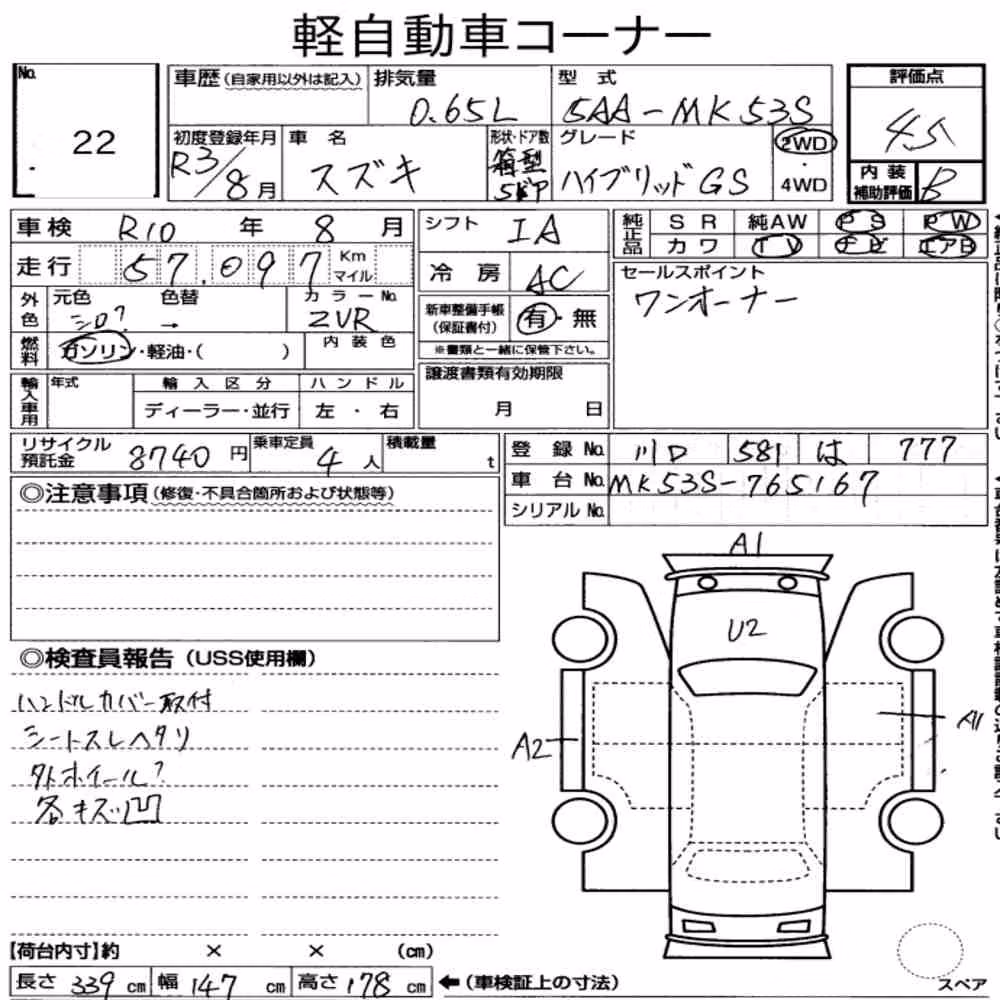 軽自動車コーナー
No. 22
車歴（自家用以外は記入）
排気量 0.65L
型式 5AA-MK53S
評価点 4.5
初度登録年月 R3/8月
車名 スズキ
形状・ドア数 箱型 5ドア
グレード ハイブリッドGS
2WD・4WD
内装補助評価 B
車検 R10年 8月
シフト IA
純正品 SR 純AW PS PW
カワ TV ナビ エアB
走行 57,097 Km マイル
冷房 AC
セールスポイント
ワンオーナー
外色 元色 シロ? 色替 → カラーNo. ZVR
新車整備手帳（保証書付） 有・無
※書類と一緒に保管下さい。
燃料 ガソリン・軽油・（ ） 内装色
譲渡書類有効期限
月 日
輸入車用 年式 輸入区分 ハンドル
ディーラー・並行 左・右
リサイクル預託金 8740円 乗車定員 4人 積載量 t
登録No. 川口 581 は 777
車台No. MK53S-765167
シリアルNo.
◎注意事項（修復・不具合箇所および状態等）
◎検査員報告（USS使用欄）
ハンドルカバー取付
シートスレヘタリ
外ホイール?
各キズ凹
A1
U2
A2
A1
【荷台内寸】約 × × （cm）
長さ 339 cm 幅 147 cm 高さ 178 cm ←（車検証上の寸法）
スペア